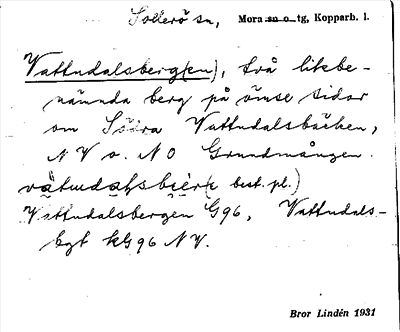 Sollerö sn, Mora sn o tg, Kopparb. l.
Vattudalsberg(en), två likbe-
nämnda berg på ömse sidor
om Södra Vattudalsbäcken,
NV o. NO Grundmången.
vàtudalsbier(e best. pl.)
Vattudalsbergen G96, Vattudals-
bgt kG96 NV.
Bror Lindén 1931